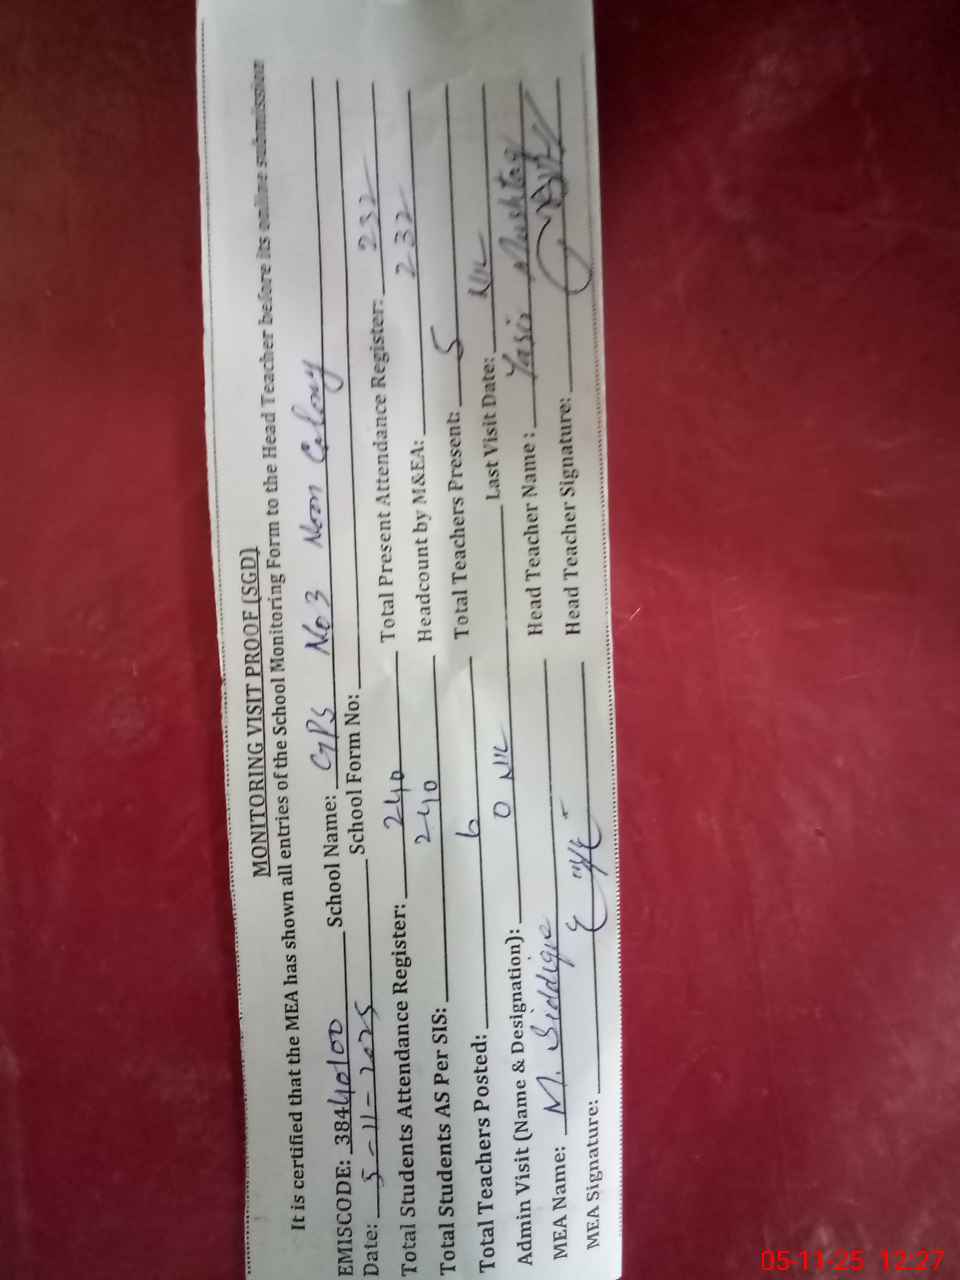 MONITORING VISIT PROOF (SGD)
It is certified that the MEA has shown all entries of the School Monitoring Form to the Head Teacher before its online submission
EMISCODE: 38440100 School Name: GPS No 3 Noon Colony
Date: 5-11-2025 School Form No:
Total Students Attendance Register: 240 Total Present Attendance Register: 232
Total Students AS Per SIS: 240 Headcount by M&EA: 232
Total Teachers Posted: 6 Total Teachers Present: 5
Admin Visit (Name & Designation): 0 NIL Last Visit Date: NIL
MEA Name: M. Siddique Head Teacher Name : Yasir Mushtaq
MEA Signature: Head Teacher Signature:
05-11-25 12:27